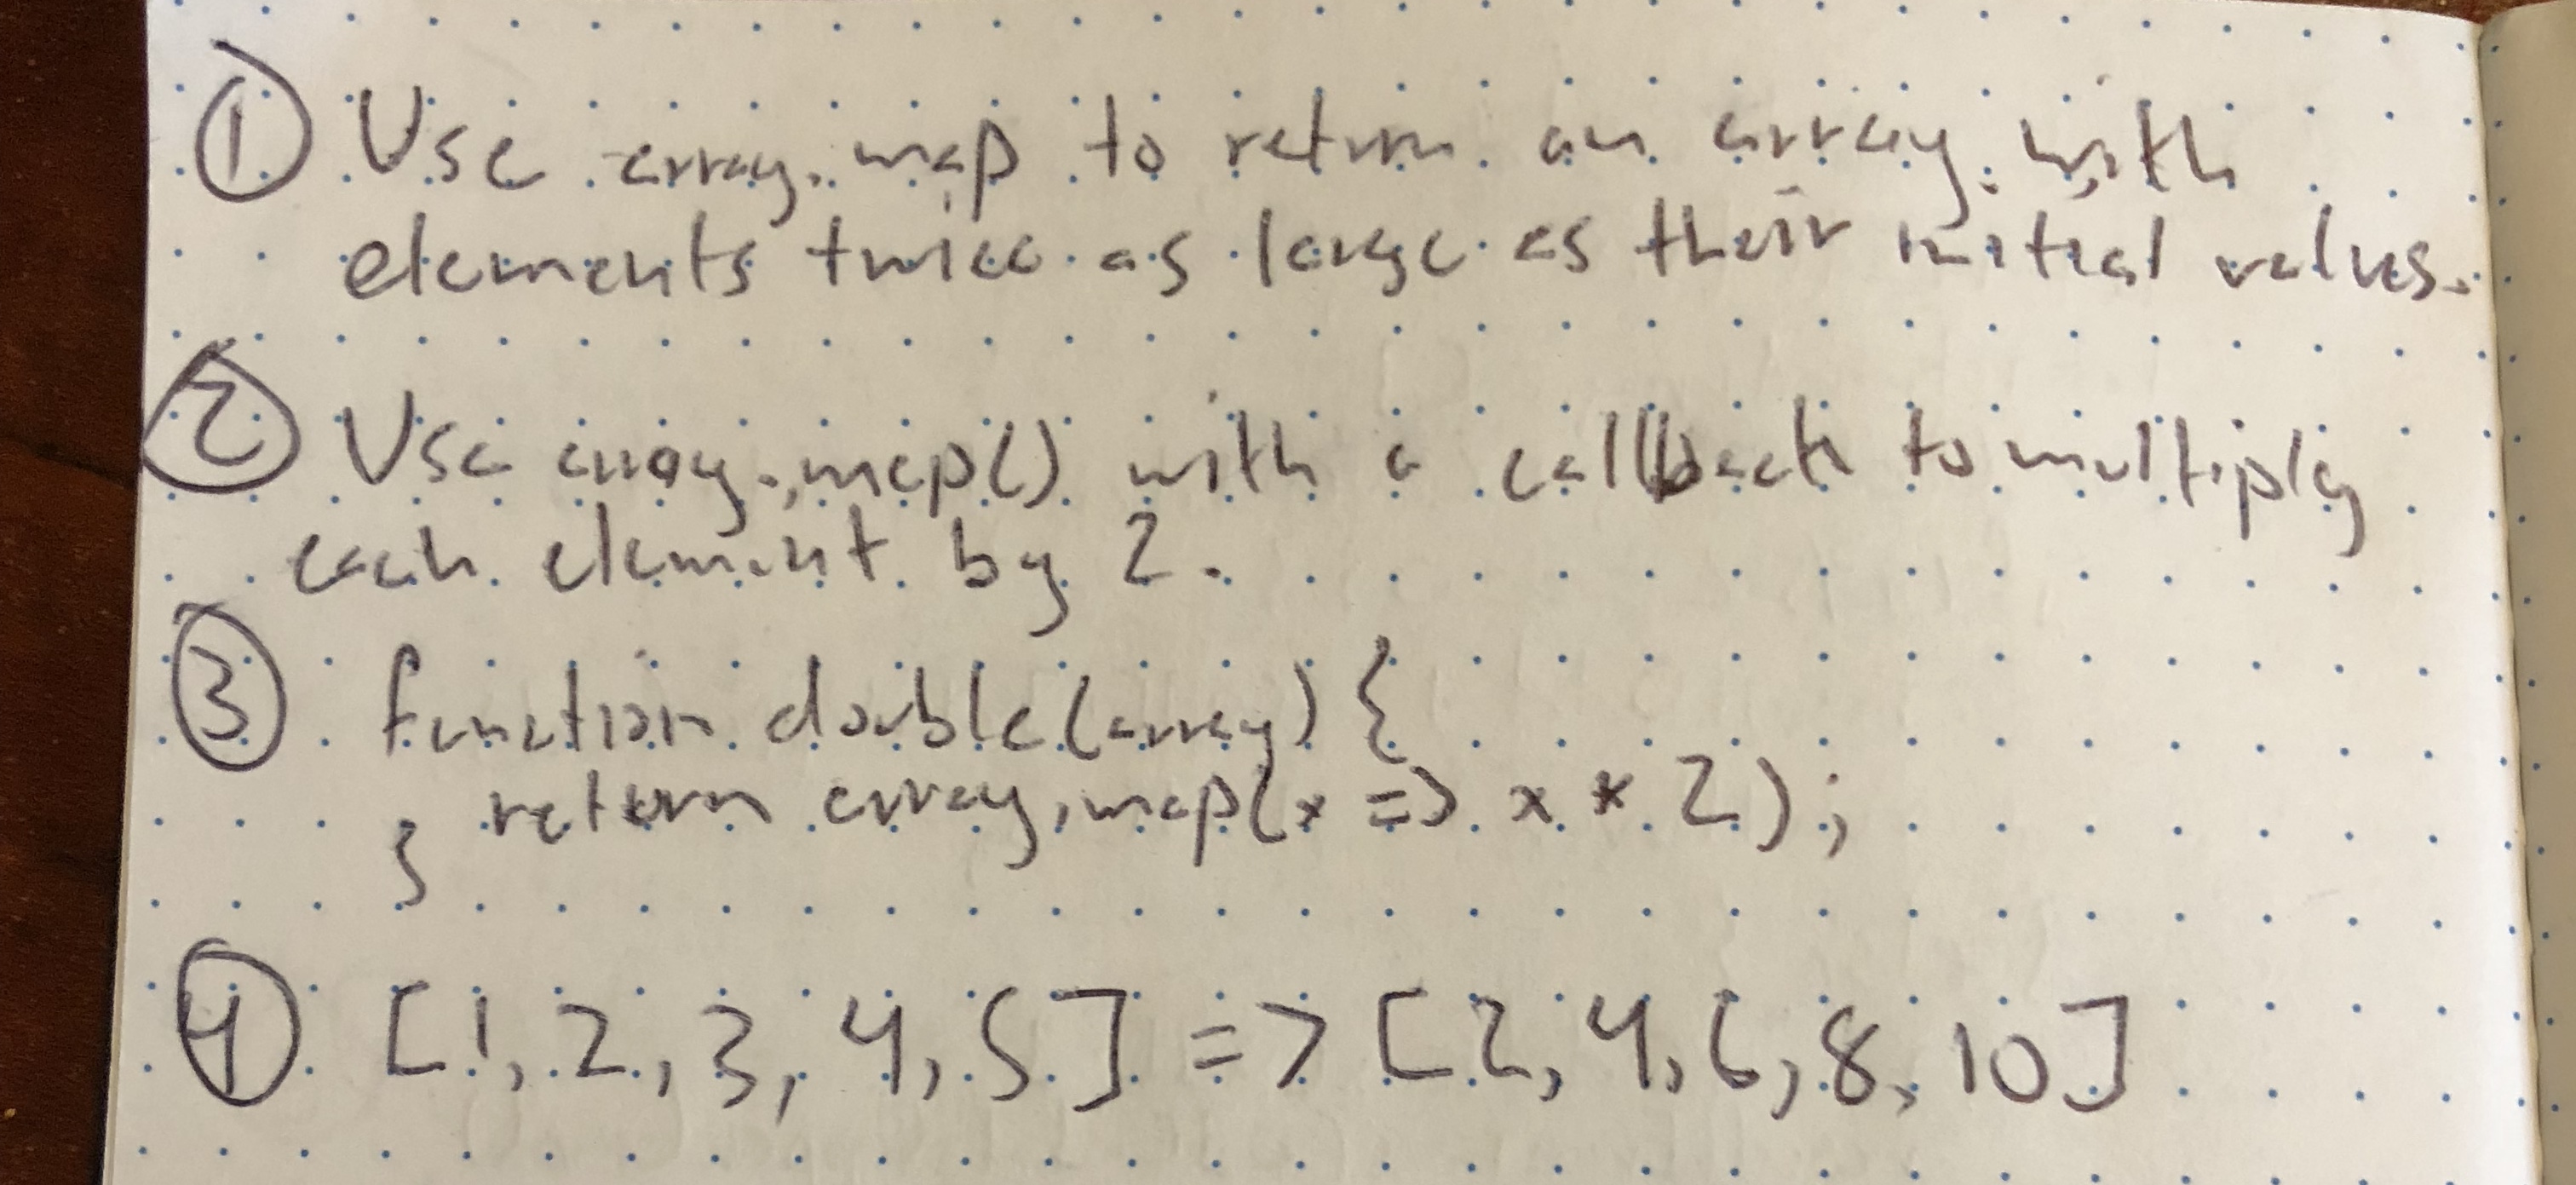 ① Use array.map to return an array with
elements twice as large as their initial values.
② Use array.map() with a callback to multiply
each element by 2.
③ function double(array) {
return array.map(x => x * 2);
}
④ [1, 2, 3, 4, 5] => [2, 4, 6, 8, 10]